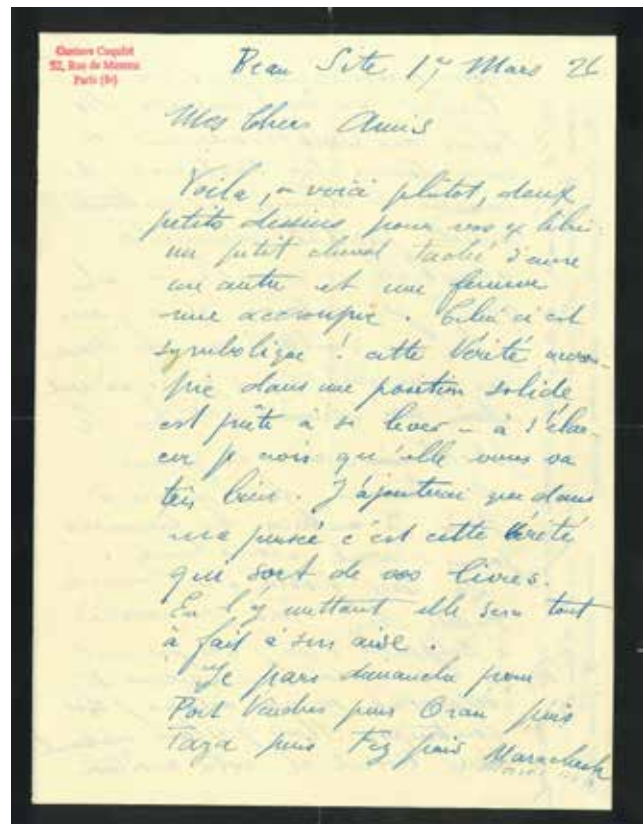 Gustave Coquiot
Paris
Beau Site, 17 Mars 26
Mes Chers Amis
Voila, ou voici plûtot, deux
petits dessins pour vos ex libris
un petit cheval taché d'encre
un autre et une femme
nue accroupie. Celui ci est
symbolique! cette Vérité accrou-
pie dans une position solide
est prête à se lever – à s'élan-
cer je crois qu'elle vous va
très bien. J'ajouterai que dans
ma pensée c'est cette Vérité
qui sort de vos livres.
En l'y mettant elle sera tout
à fait à son aise.
Je pars dimanche pour
Port Vendres puis Oran puis
Taza puis Fez puis Marackech